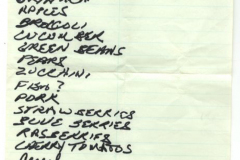 APPLES
BROCCOLI
CUCUMBER
GREEN BEANS
PEARS
ZUCCHINI
FISH?
PORK
STRAWBERRIES
BLUE BERRIES
RASBERRIES
CHERRY TOMATOS